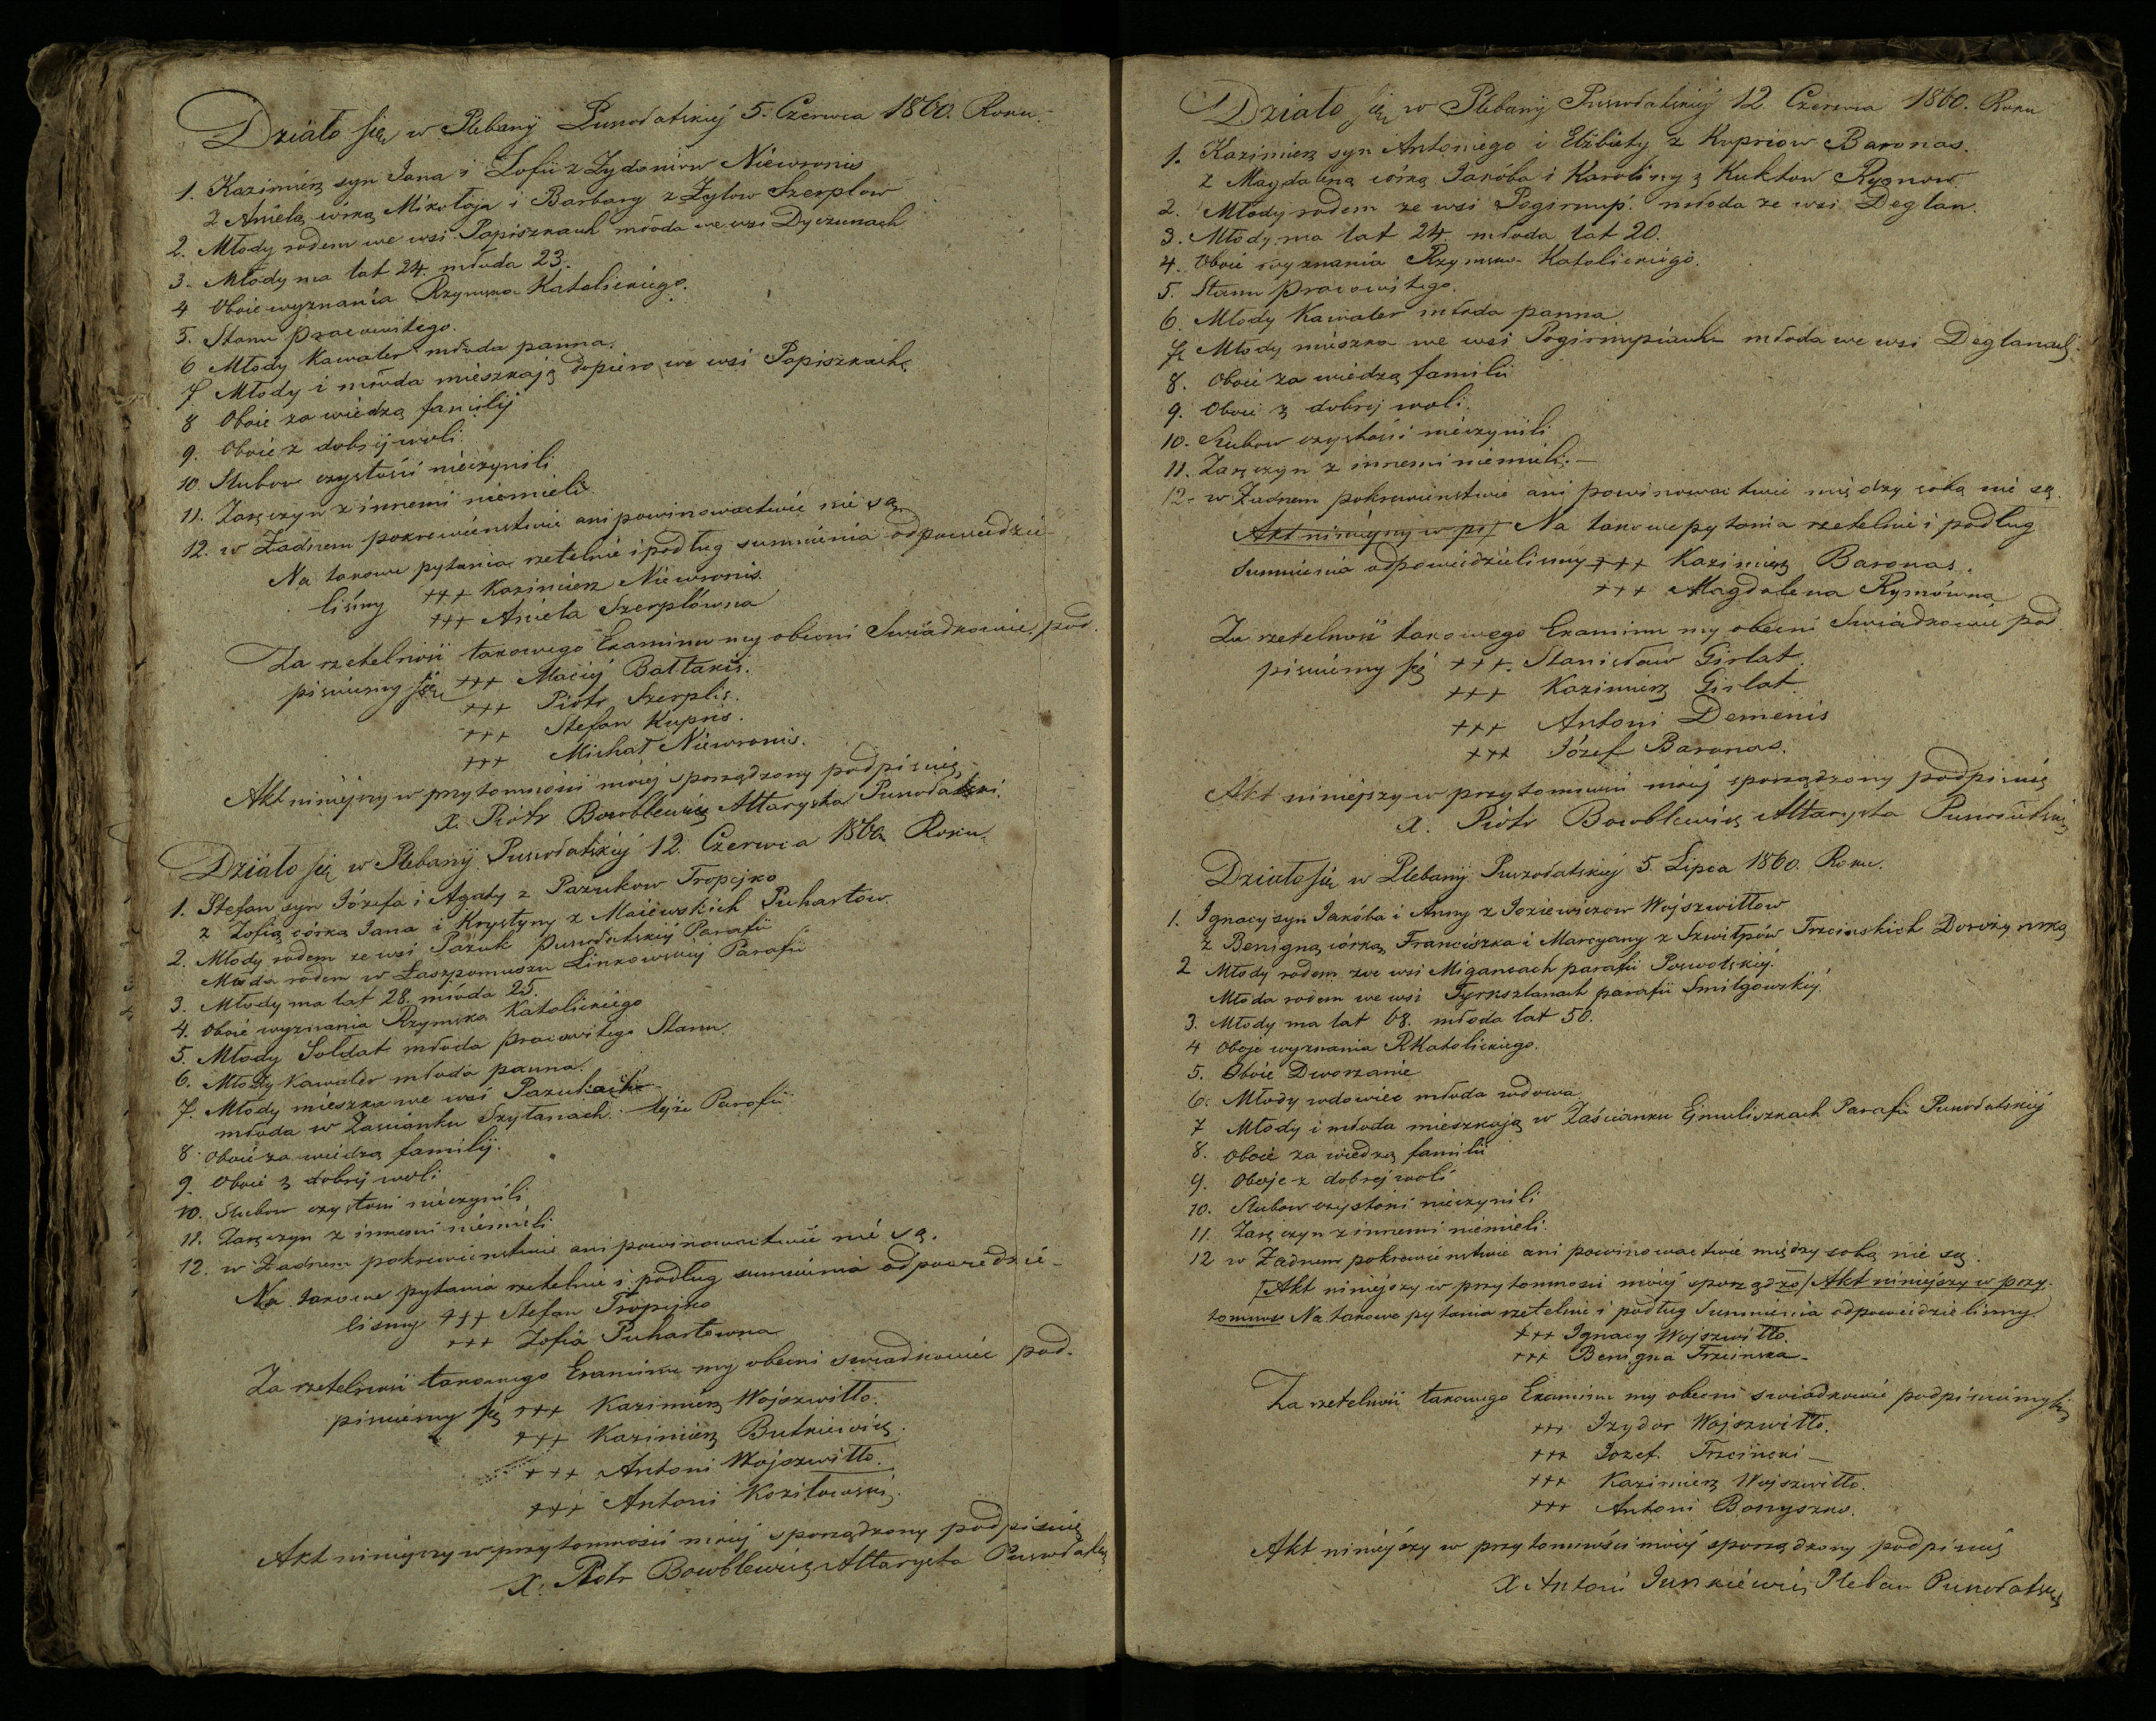 Działo się w Plebanÿ Puszołatskiéj 5. Czerwca 1860. Roku.
1. Kazimierz syn Jana i Zofii z Zydoniow Niewronis
z Anielą córką Mikołaja i Barbary z Zylow Szerplow
2. Młody rodem we wsi Papiszkach młoda we wsi Dyczunach
3. Młody ma lat 24. młoda 23.
4 Oboie wyznania Rzymsko Katolickiego.
5. Stanu pracowitego.
6 Młody Kawaler młoda panna.
7 Młody i młoda mieszkają dopiero we wsi Papiszkach
8 Oboie za wiedzą familij
9. Oboie z dobrej woli.
10 Slubow czystości nieczynili
11. Zaręczyn z innemi niemieli.
12. w Żadnem pokrewienstwie ani powinowactwie nie są
Na takowe pytania rzetelnie i podług sumnienia odpowiedzie-
liśmy +++ Kazimierz Niewronis.
+++ Aniela Szerplówna
Za rzetelność takowego Examinu my obecni Swiadkowie pod-
pisuiemy się +++ Maciéj Bałtakis.
+++ Piotr Szerplis.
+++ Stefan Kupris.
+++ Michał Niewronis.
Akt niniejszy w przytomności mojéj sporządzony podpisuię
X. Piotr Bowblewicz Altarysta
Działo się w Plebanÿ 12. Czerwca 1860 Roku.
1. Stefan syn Józefa i Agaty z Pazukow Tropejko
z Zofią córką Jana i Krystyny z Maiewskich Puhartow
2. Młody rodem ze wsi Pazuk Parafii
Młoda rodem w Linkowskiéj Parafii
3. Młody ma lat 28. młoda 25.
4. Oboie wyznania Rzymsko Katolickiego
5. Młody Soldat młoda pracowitego Stanu.
6. Młody Kawaler młoda panna.
7. Młody mieszka we wsi Pazukach
młoda w Zascianku Szyłanach téjże Parafii
8. Oboie za wiedzą familÿ.
9. Oboie z dobrej woli
10. Slubow czystosci nieczynili
11. Zaręczyn z innemi niemieli
12. w Żadnem pokrewienstwie ani powinowactwie nie są.
Na takowe pytania rzetelnie i podług sumnienia odpowiedzie-
lismy +++ Stefan Tropejko
+++ Zofia Puhartowna
Za rzetelność takowego Examinu my obecni swiadkowie pod-
pisuiemy się +++ Kazimierz Wojszwiłło.
+++ Kazimierz Butkiewicz.
+++ Antoni Wojszwiłło.
+++ Antoni Koziłowski.
Akt niniejszy w przytomności mojéj sporządzony podpisuię
X. Piotr Bowblewicz Altarysta
Działo się w Plebanÿ 12. Czerwca 1860. Roku
1. Kazimierz syn Antoniego i Elżbiety z Kupriow Baronas.
z Magdaleną córką Jakóba i Karoliny z Kuktow Rymow
2. Młody rodem ze wsi Pogirnup. młoda ze wsi Deglan.
3. Młody ma lat 24. młoda lat 20.
4. Oboie wyznania Rzymsko Katolickiego.
5. Stanu pracowitego.
6. Młody Kawaler młoda panna
7. Młody mieszka we wsi młoda we wsi Deglanach.
8. Oboie za wiedzą familii
9. Oboie z dobrej woli.
10. Slubow czystości nieczynili
11. Zaręczyn z innemi niemieli.—
12. w Żadnem pokrewienstwie ani powinowactwie między sobą nie są.
Akt niniejszy w prz/ Na takowe pytania rzetelnie i podług
Sumnienia odpowiedzielismy +++ Kazimierz Baronas.
+++ Magdalena Rymówna
Za rzetelność takowego Examinu my obecni Swiadkowie pod-
pisuiemy się +++. Stanisław Girlat.
+++ Kazimierz Girlat.
+++ Antoni Demenis
+++ Józef Baronas.
Akt niniejszy w przytomności mojéj sporządzony podpisuię
X. Piotr Bowblewicz Altarysta
Działo się w Plebanÿ 5. Lipca 1860. Roku.
1. Ignacy syn Jakóba i Anny z Wojszwiłłow
z Benigną córką Franciszka i Marcyany z Szwiłpów Trzcinskich
2 Młody rodem we wsi Migancach parafii
Młoda rodem we wsi Tyrkszlanach parafii Smilgowskiéj.
3. Młody ma lat 68. młoda lat 50.
4 Oboje wyznania RKatolickiego.
5. Oboie Dworzanie
6. Młody wdowiec młoda wdowa
7 Młody i młoda mieszkają w Zaścianku Parafii
8. Oboie za wiedzą familii
9. Oboje z dobrej woli
10. Slubow czystości nieczynili
11. Zaręczyn z innemi niemieli.
12 w Żadnem pokrewienstwie ani powinowactwie między sobą nie są.
/Akt niniejszy w przytomnosci mojéj sporządzo/ Akt niniejszy w przy-
tomnos Na takowe pytania rzetelnie i podług Sumnienia odpowiedzielismy
+++ Ignacy Wojszwiłło.
+++ Benigna Trzcinska.
Za rzetelność takowego Examinu my obecni swiadkowie podpisuiemy się
+++ Izydor Wojszwiłło.
+++ Jozef. Trzcinski —
+++ Kazimierz Wojszwiłło.
+++ Antoni Bonyszko.
Akt niniejszy w przytomności mojéj sporządzony podpisuię
X. Antoni Pleban